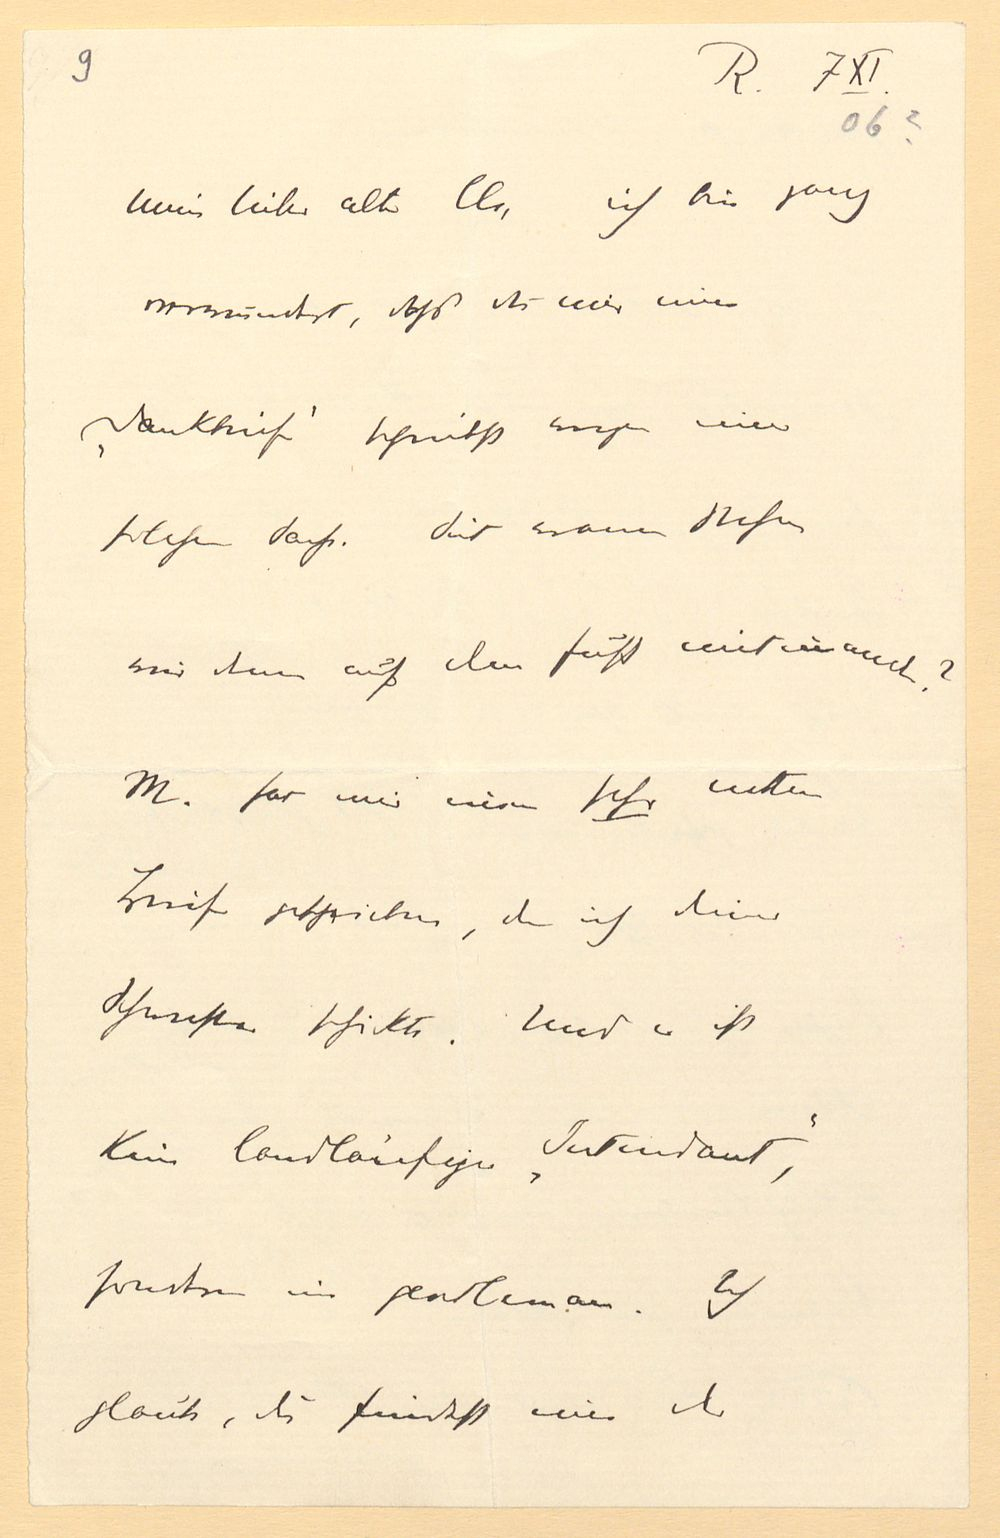 9
R. 7 XI.
06?
mein lieber alter Ur, ich bin ganz
verwundert, daß du mir einen
„Dankbrief' schreibst wegen einer
solchen Sache. Seit wann stehen
wir denn auf dem Fuß miteinander?
M. hat mir einen sehr netten
Brief geschrieben, den ich deiner
Schwester schickte. Und er ist
kein landläufiger „Intendant",
sondern ein gentleman. Ich
glaube, du findest einen der